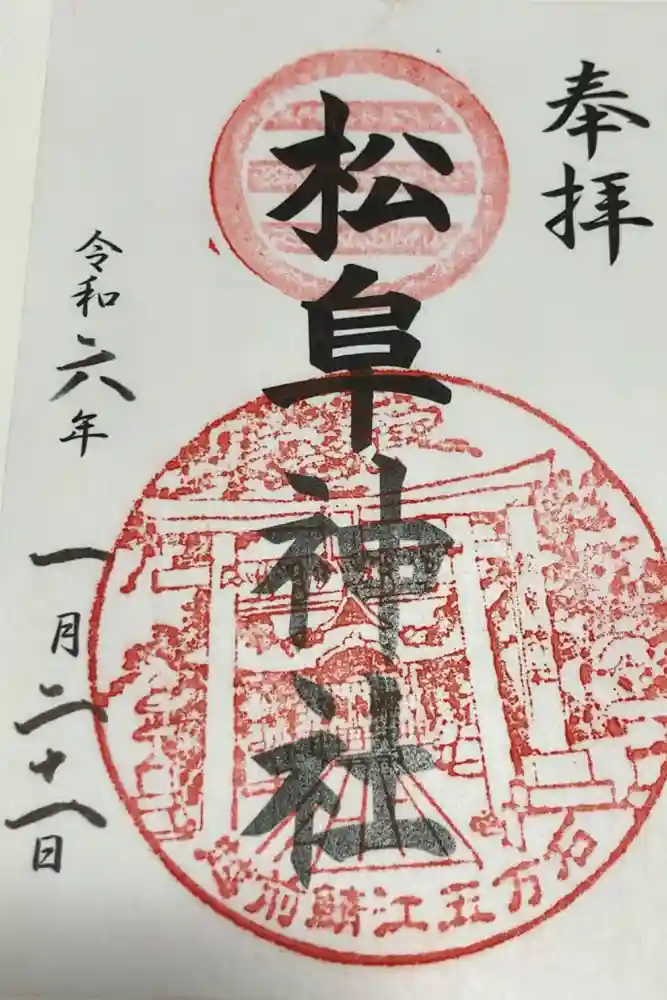 奉拝
松阜神社
令和六年
一月二十八日
越前鯖江五万石